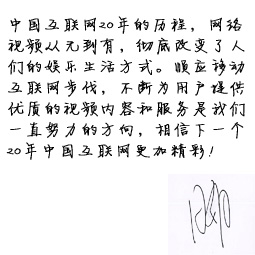 中国互联网20年的历程，网络
视频从无到有，彻底改变了人
们的娱乐生活方式。顺应移动
互联网步伐，不断为用户提供
优质的视频内容和服务是我们
一直努力的方向，相信下一个
20年中国互联网更加精彩！